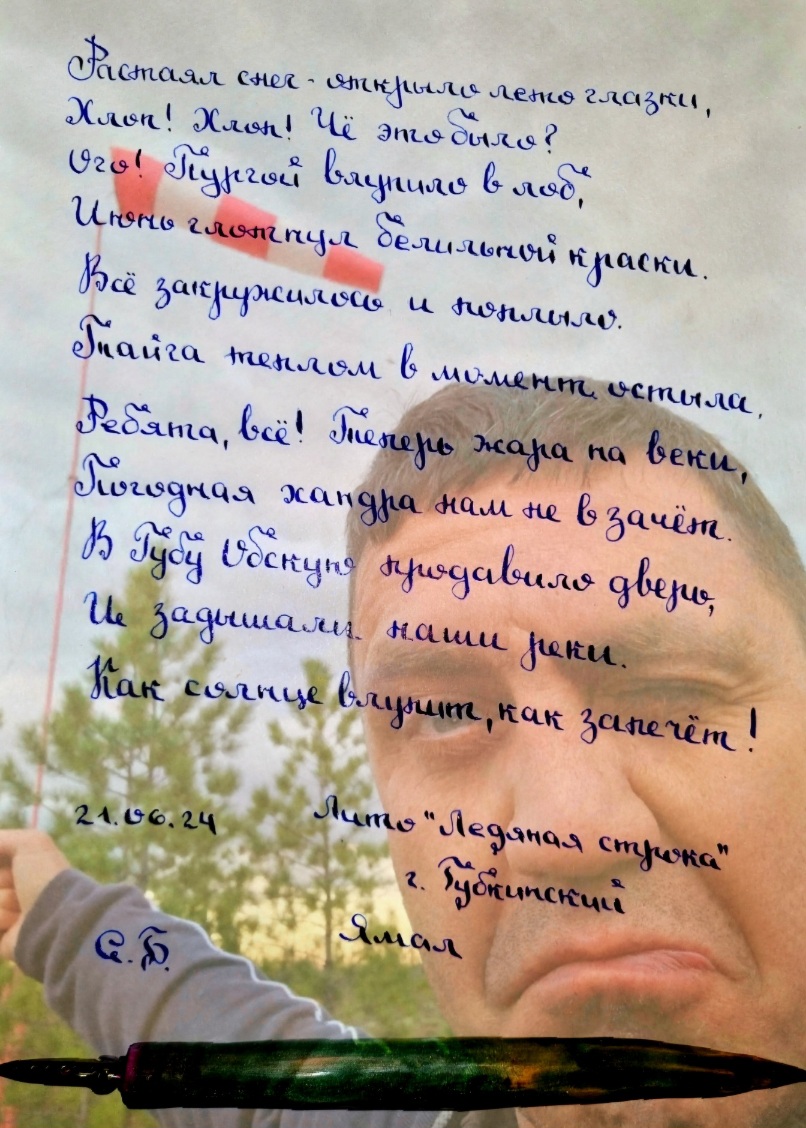 Растаял снег - открыло лето глазки,
Хлоп! Хлоп! Чё это было?
Ого! Пургой влупило в лоб,
Июнь глотнул белильной краски.
Всё закружилось и поплыло.
Тайга теплом в момент остыла.
Ребята, всё! Теперь жара на веки,
Погодная хандра нам не в зачёт.
В Губу Обскую продавило дверь,
Не задышали наши реки.
Как солнце влупит, как запечёт!
21.06.24 Лито "Ледяная строка"
г. Губкинский
С.Б. Ямал